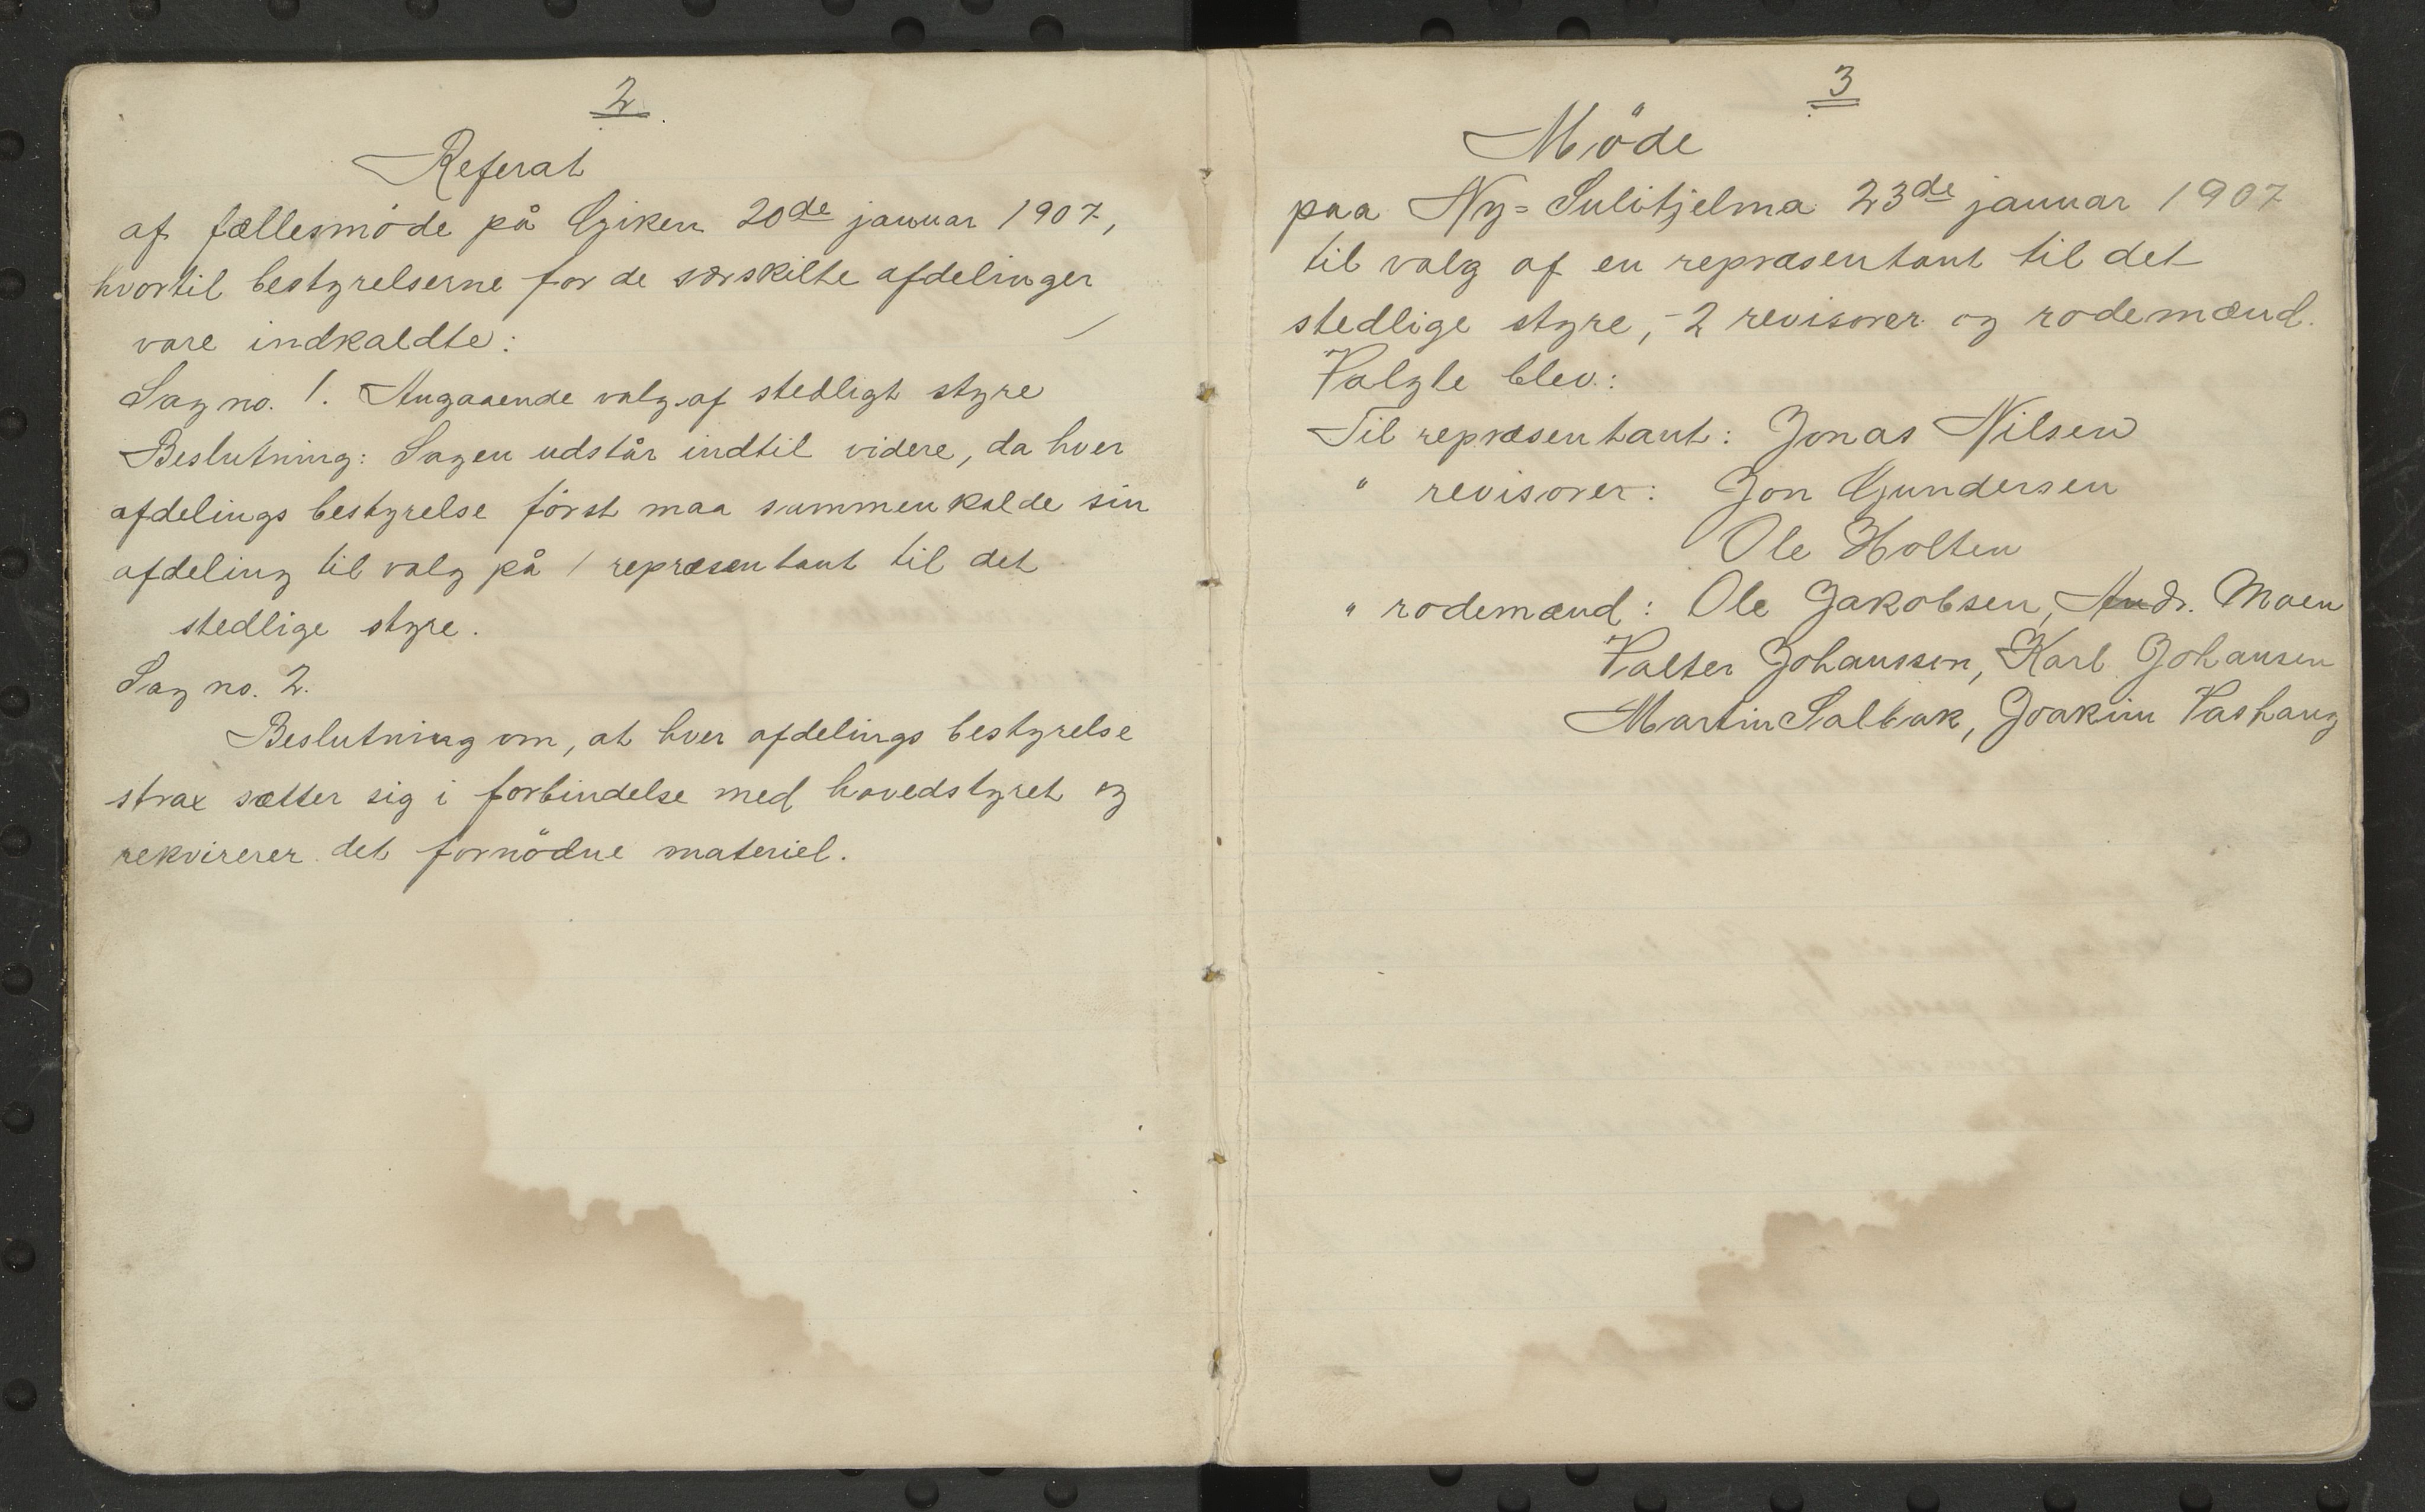 2
Referat
af fællesmöde på Giken 20de januar 1907,
hvortil bestyrelserne for de særskilte afdelinger
vare indkaldte:
Sag no. 1. Angaaende valg af stedligt styre
Beslutning: Sagen udstår indtil videre, da hver
afdelings bestyrelse först maa sammenkalde sin
afdeling til valg på 1 repræsentant til det
stedlige styre.
Sag no. 2.
Beslutning om, at hver afdelings bestyrelse
strax sætter sig i forbindelse med hovedstyret og
rekvirerer det fornödne materiel.
3
Möde
paa Ny-Sulitjelma 23de januar 1907
til valg af en repræsentant til det
stedlige styre, - 2 revisorer og rodemænd.
Valgte blev:
Til repræsentant: Jonas Nilsen
" revisorer: Jon Gundersen
Ole Holten
" rodemænd: Ole Jakobsen, Andr. Moen
Valter Johanssen, Karl Johansen
Martin Salbak, Joakim Vashaug